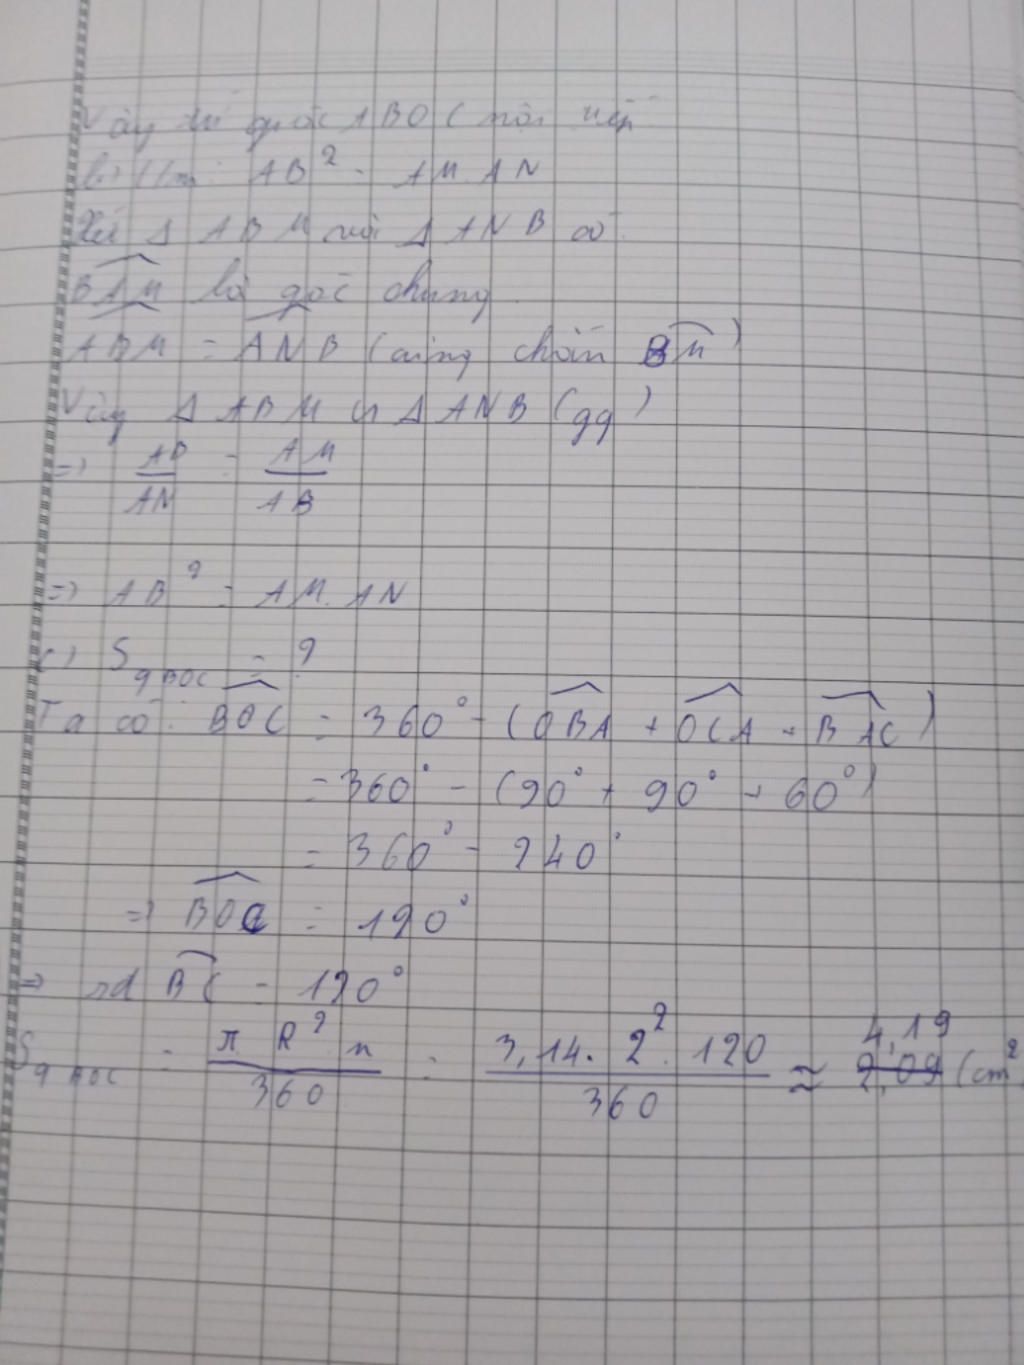 Vậy tứ giác ABOC nội tiếp
b) C/m: AB² = AM.AN
Xét Δ ABM với Δ ANB có
BAM là góc chung
ABM = ANB (cùng chắn BM)
Vậy Δ ABM ∽ Δ ANB (gg)
=> AB/AN = AM/AB
=> AB² = AM.AN
c) S q BOC = ?
Ta có: BOC = 360° - (OBA + OCA + BAC)
= 360° - (90° + 90° + 60°)
= 360° - 240°
=> BOC = 120°
=> sđ BC = 120°
S q BOC = π R² n / 360 = 3,14. 2². 120 / 360 ≈ 4,19 (cm²